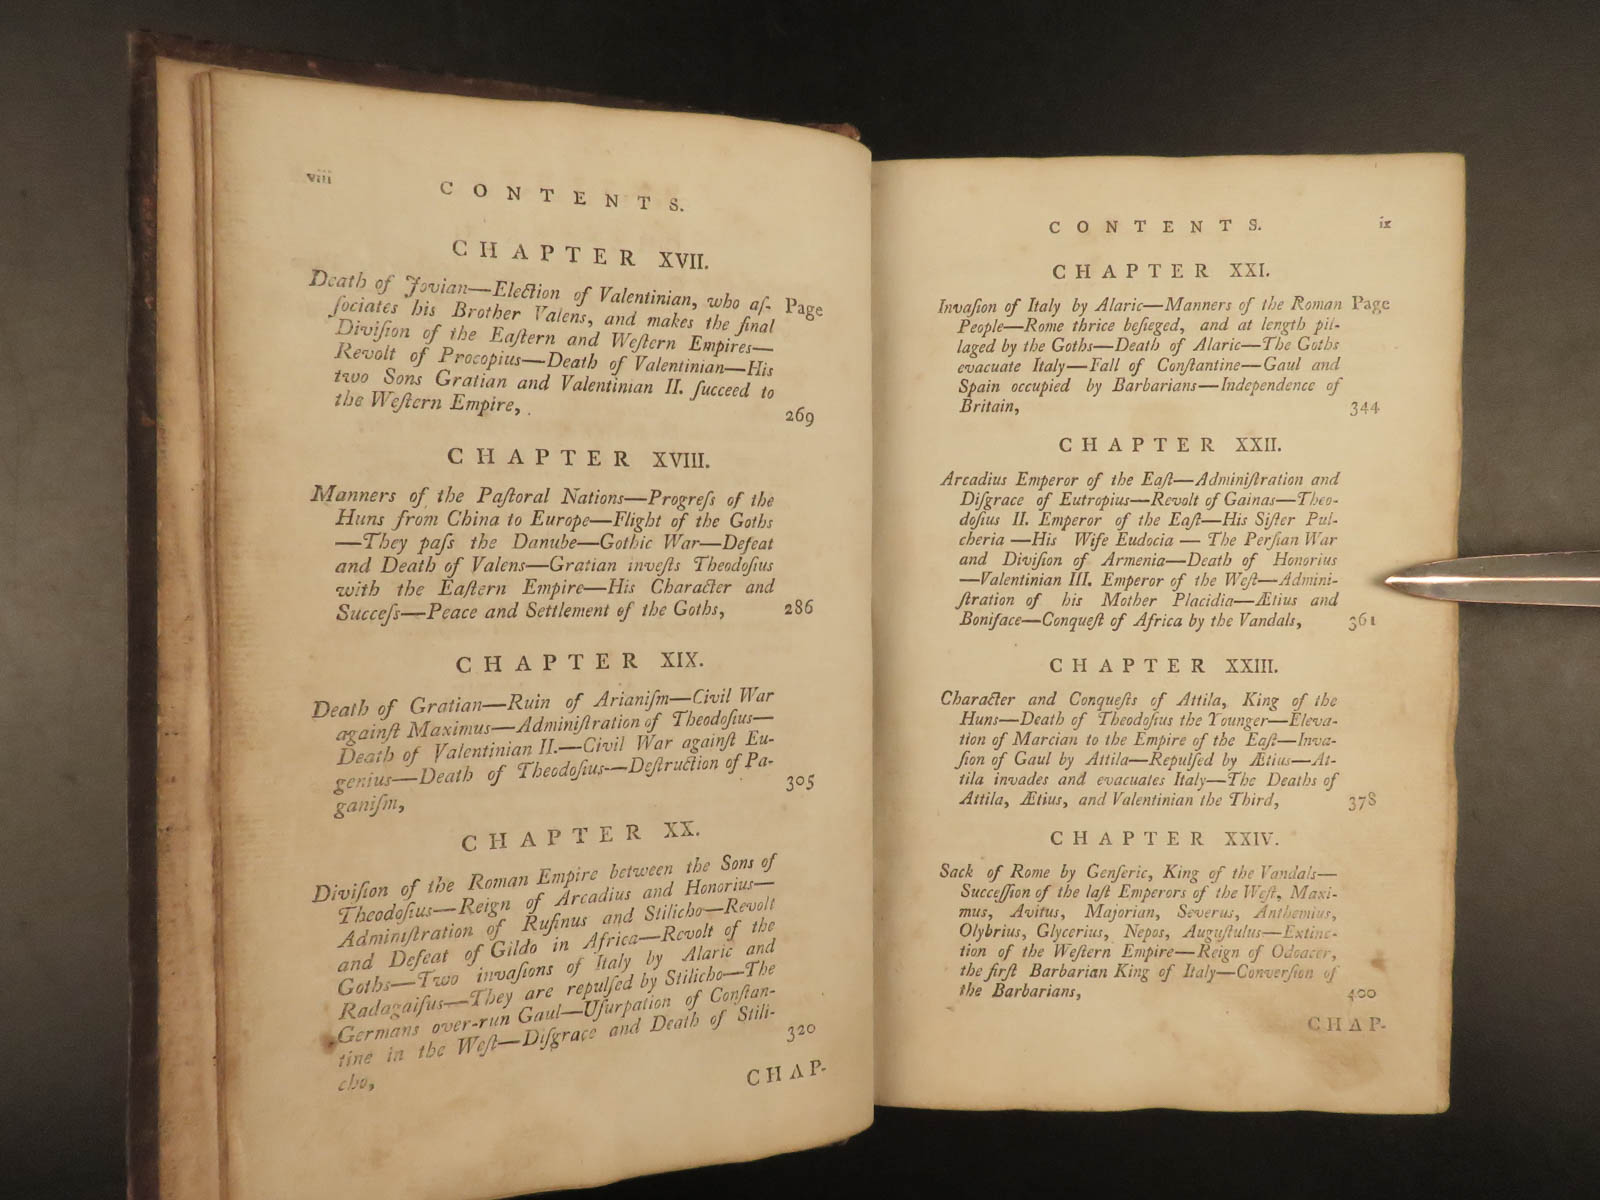 viii
CONTENTS.
CHAPTER XVII.
Death of Jovian—Election of Valentinian, who aſ- Page
ſociates his Brother Valens, and makes the final
Diviſion of the Eaſtern and Weſtern Empires—
Revolt of Procopius—Death of Valentinian—His
two Sons Gratian and Valentinian II. ſucceed to
the Weſtern Empire, 269
CHAPTER XVIII.
Manners of the Paſtoral Nations—Progreſs of the
Huns from China to Europe—Flight of the Goths
—They paſs the Danube—Gothic War—Defeat
and Death of Valens—Gratian inveſts Theodoſius
with the Eaſtern Empire—His Character and
Succeſs—Peace and Settlement of the Goths, 286
CHAPTER XIX.
Death of Gratian—Ruin of Arianiſm—Civil War
againſt Maximus—Adminiſtration of Theodoſius—
Death of Valentinian II.—Civil War againſt Eu-
genius—Death of Theodoſius—Deſtruction of Pa-
ganiſm, 305
CHAPTER XX.
Diviſion of the Roman Empire between the Sons of
Theodoſius—Reign of Arcadius and Honorius—
Adminiſtration of Rufinus and Stilicho—Revolt
and Defeat of Gildo in Africa—Revolt of the
Goths—Two invaſions of Italy by Alaric and
Radagaiſus—They are repulſed by Stilicho—The
Germans over-run Gaul—Uſurpation of Conſtan-
tine in the Weſt—Diſgrace and Death of Stili-
cho, 320
CHAP-
CONTENTS. ix
CHAPTER XXI.
Invaſion of Italy by Alaric—Manners of the Roman Page
People—Rome thrice beſieged, and at length pil-
laged by the Goths—Death of Alaric—The Goths
evacuate Italy—Fall of Conſtantine—Gaul and
Spain occupied by Barbarians—Independence of
Britain, 344
CHAPTER XXII.
Arcadius Emperor of the Eaſt—Adminiſtration and
Diſgrace of Eutropius—Revolt of Gainas—Theo-
doſius II. Emperor of the Eaſt—His Siſter Pul-
cheria—His Wife Eudocia—The Perſian War
and Diviſion of Armenia—Death of Honorius
—Valentinian III. Emperor of the Weſt—Admini-
ſtration of his Mother Placidia—Ætius and
Boniface—Conqueſt of Africa by the Vandals, 361
CHAPTER XXIII.
Character and Conqueſts of Attila, King of the
Huns—Death of Theodoſius the Younger—Eleva-
tion of Marcian to the Empire of the Eaſt—Inva-
ſion of Gaul by Attila—Repulſed by Ætius—At-
tila invades and evacuates Italy—The Deaths of
Attila, Ætius, and Valentinian the Third, 378
CHAPTER XXIV.
Sack of Rome by Genſeric, King of the Vandals—
Succeſſion of the laſt Emperors of the Weſt, Maxi-
mus, Avitus, Majorian, Severus, Anthemius,
Olybrius, Glycerius, Nepos, Auguſtulus—Extinc-
tion of the Weſtern Empire—Reign of Odoacer,
the firſt Barbarian King of Italy—Converſion of
the Barbarians, 400
CHAP-